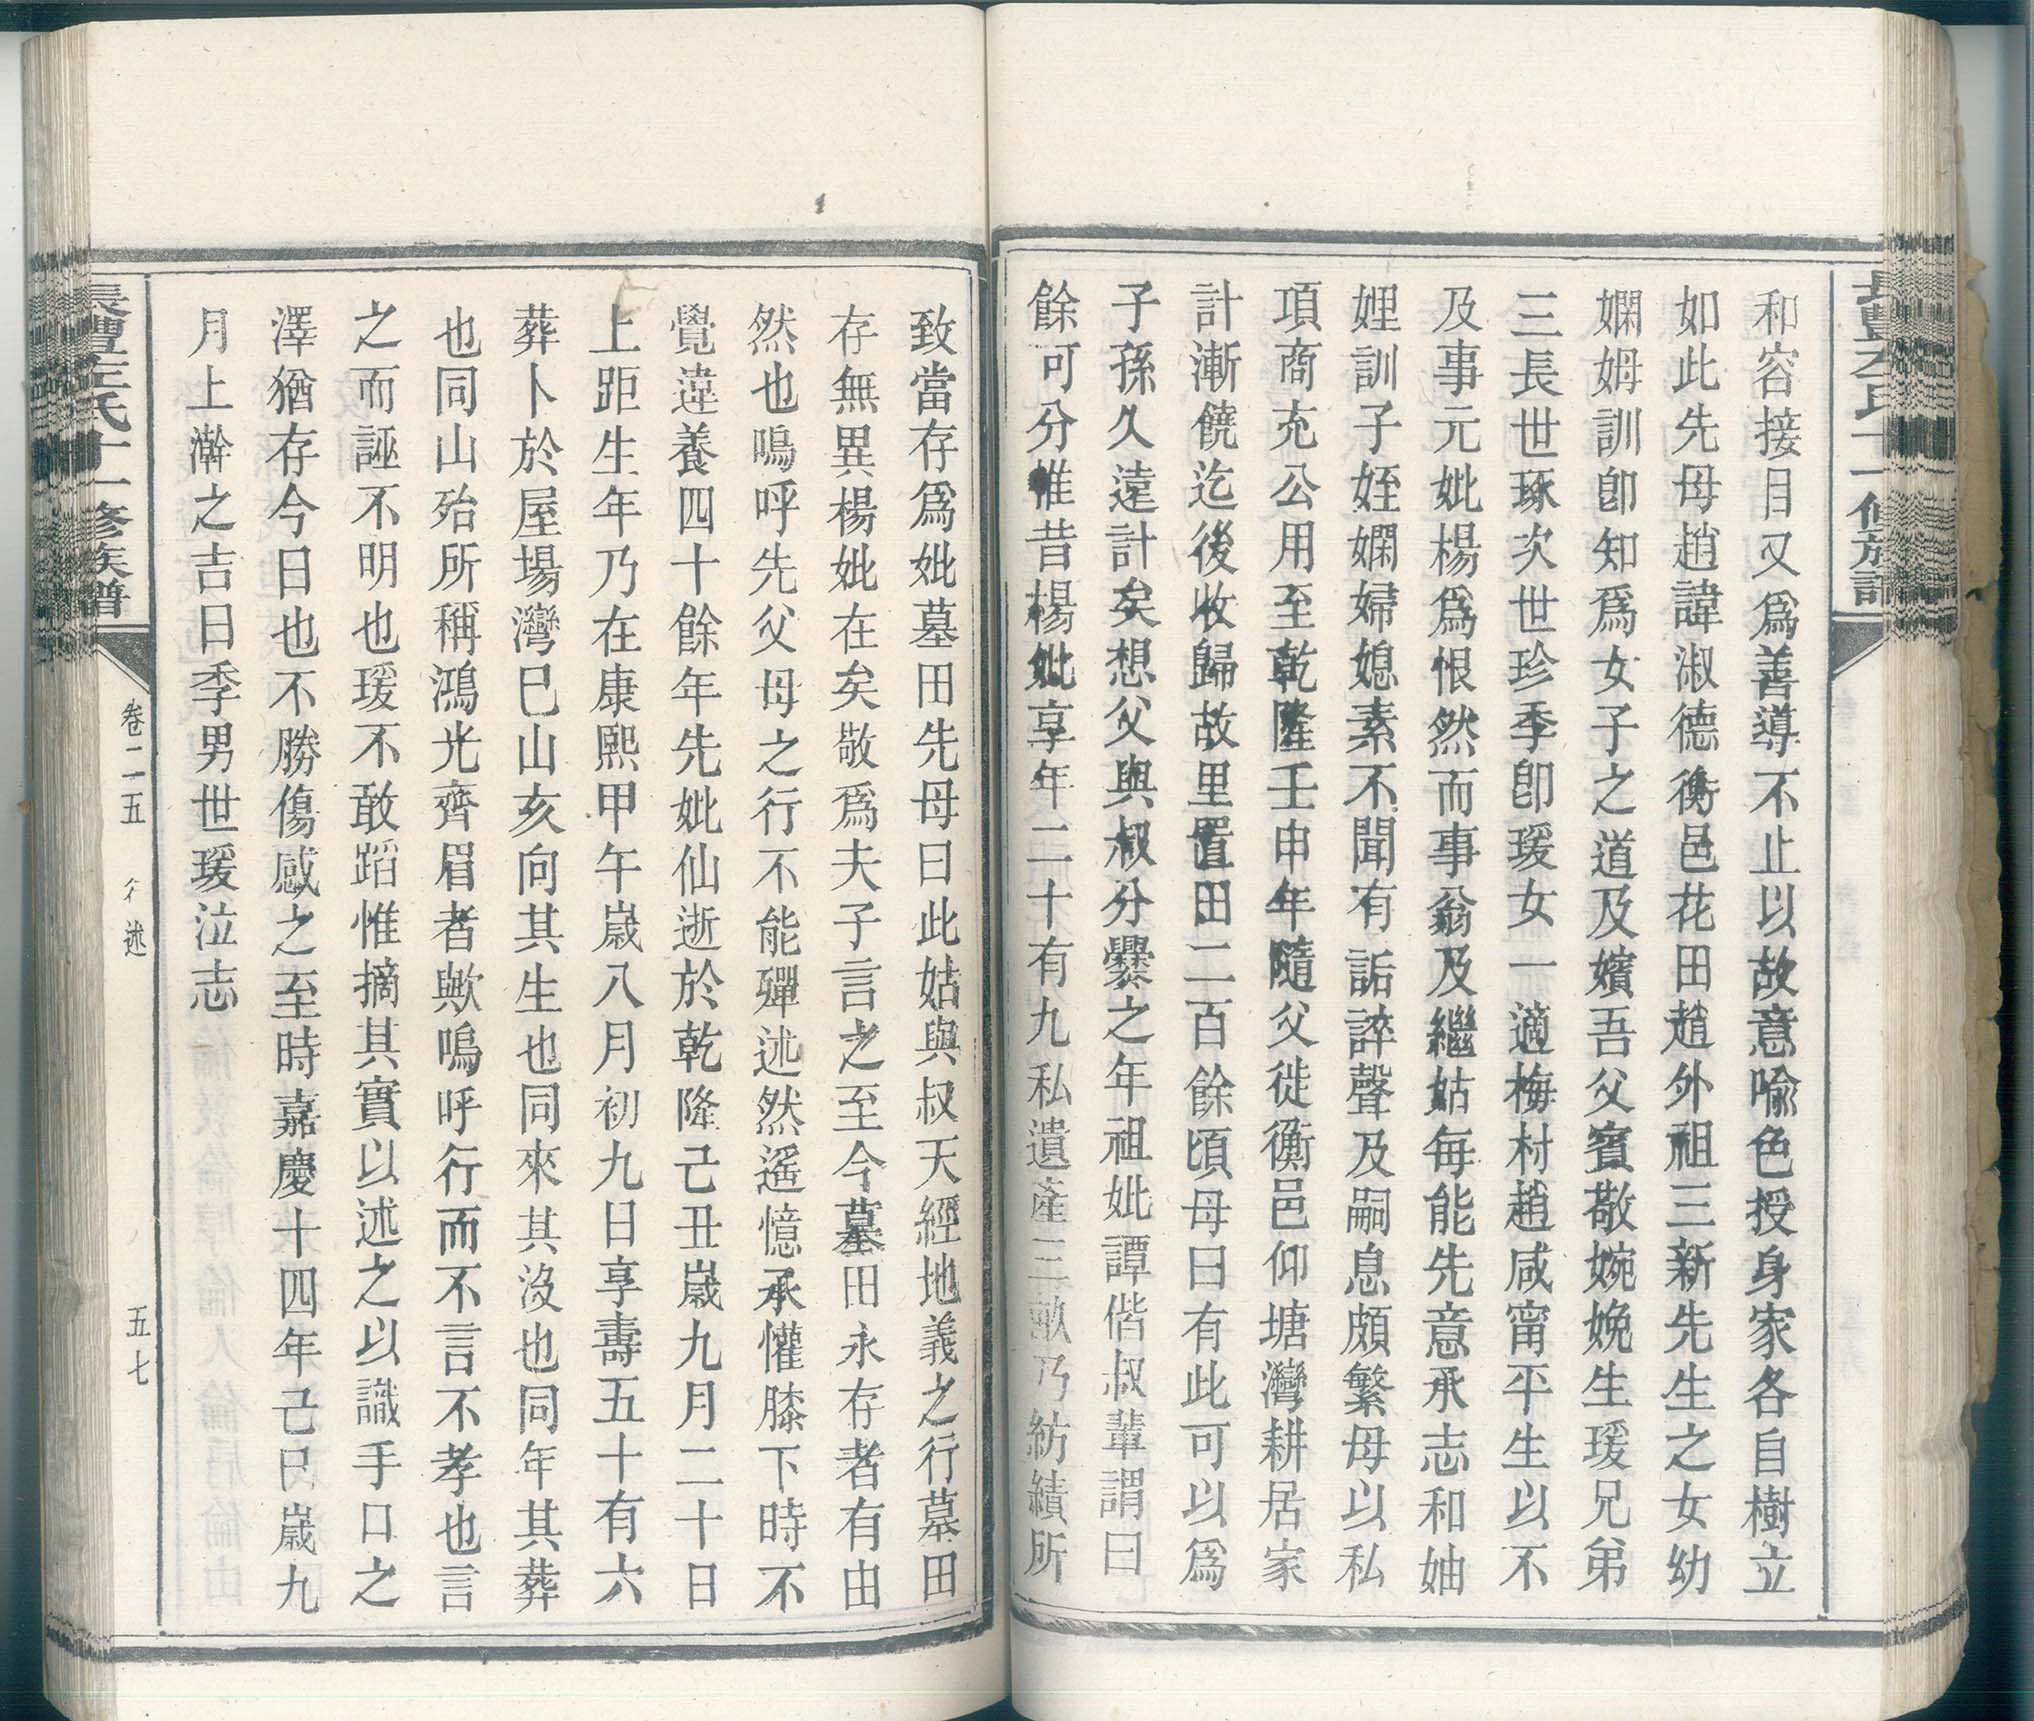 和容接目又爲善導不止以故意喻色授身家各自樹立
如此先母趙諱淑德衡邑花田趙外祖三新先生之女幼
嫻姆訓卽知爲女子之道及嬪吾父賓敬婉娩生瑗兄弟
三長世琢次世珍季卽瑗女一適梅村趙咸甯平生以不
及事元妣楊爲恨然而事翁及繼姑每能先意承志和妯
娌訓子姪嫻婦媳素不聞有詬誶聲及嗣息頗繁母以私
項商充公用至乾隆壬申年隨父徙衡邑仰塘灣耕居家
計漸饒迄後收歸故里置田二百餘頃母曰有此可以爲
子孫久遠計矣想父與叔分爨之年祖妣譚偕叔輩謂曰
餘可分惟昔楊妣享年二十有九私遺產三畝乃紡績所
致當存爲妣墓田先母曰此姑與叔天經地義之行墓田
存無異楊妣在矣敬爲夫子言之至今墓田永存者有由
然也嗚呼先父母之行不能殫述然遙憶承懽膝下時不
覺違養四十餘年先妣仙逝於乾隆己丑歲九月二十日
上距生年乃在康熙甲午歲八月初九日享壽五十有六
葬卜於屋場灣巳山亥向其生也同來其沒也同年其葬
也同山殆所稱鴻光齊眉者歟嗚呼行而不言不孝也言
之而誣不明也瑗不敢蹈惟摘其實以述之以識手口之
澤猶存今日也不勝傷感之至時嘉慶十四年己巳歲九
月上澣之吉日季男世瑗泣志
氏十一修族譜
卷二五
述
五七